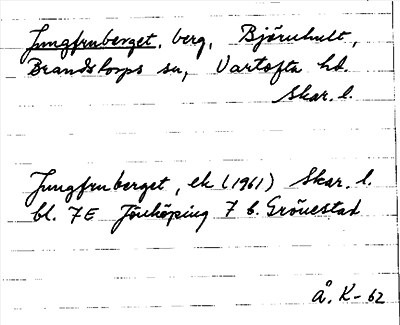 Jungfruberget, berg, Björnhult,
Brandstorps sn, Vartofta hd.
Skar. l.
Jungfruberget, ek (1961) Skar. l.
bl. 7E Jönköping 7 b. Grönestad
Å. K-62